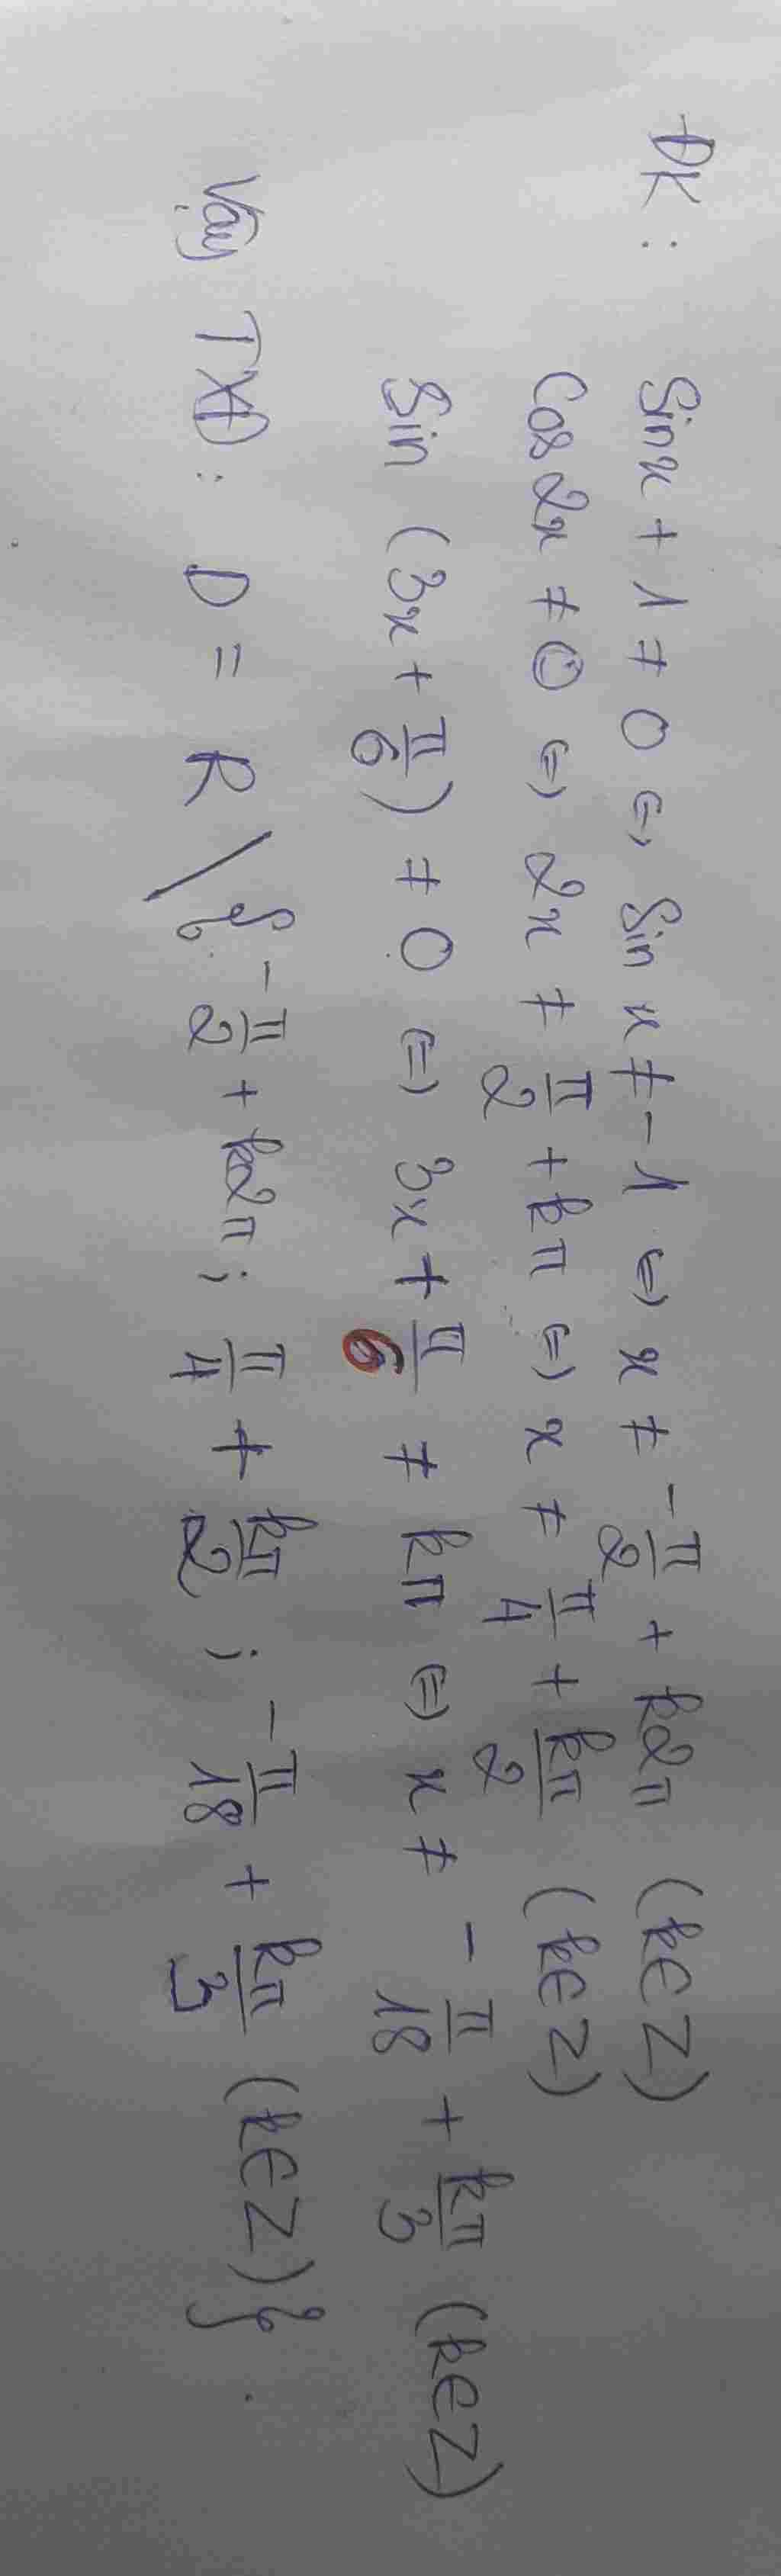 ĐK: Sinx + 1 ≠ 0 ⇔ Sin x ≠ -1 ⇔ x ≠ -π/2 + k2π (k∈Z)
Cos 2x ≠ 0 ⇔ 2x ≠ π/2 + kπ ⇔ x ≠ π/4 + kπ/2 (k∈Z)
Sin (3x + π/6) ≠ 0 ⇔ 3x + π/6 ≠ kπ ⇔ x ≠ -π/18 + kπ/3 (k∈Z)
Vậy TXĐ: D = R \ {-π/2 + k2π; π/4 + kπ/2; -π/18 + kπ/3 (k∈Z)}.